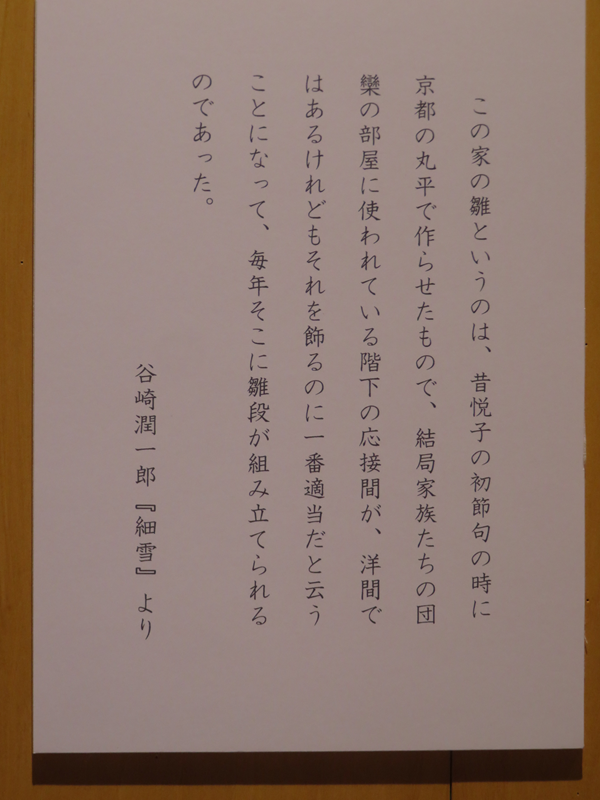 この家の雛というのは、昔悦子の初節句の時に
京都の丸平で作らせたもので、結局家族たちの団
欒の部屋に使われている階下の応接間が、洋間で
はあるけれどもそれを飾るのに一番適当だと云う
ことになって、毎年そこに雛段が組み立てられる
のであった。
谷崎潤一郎『細雪』より